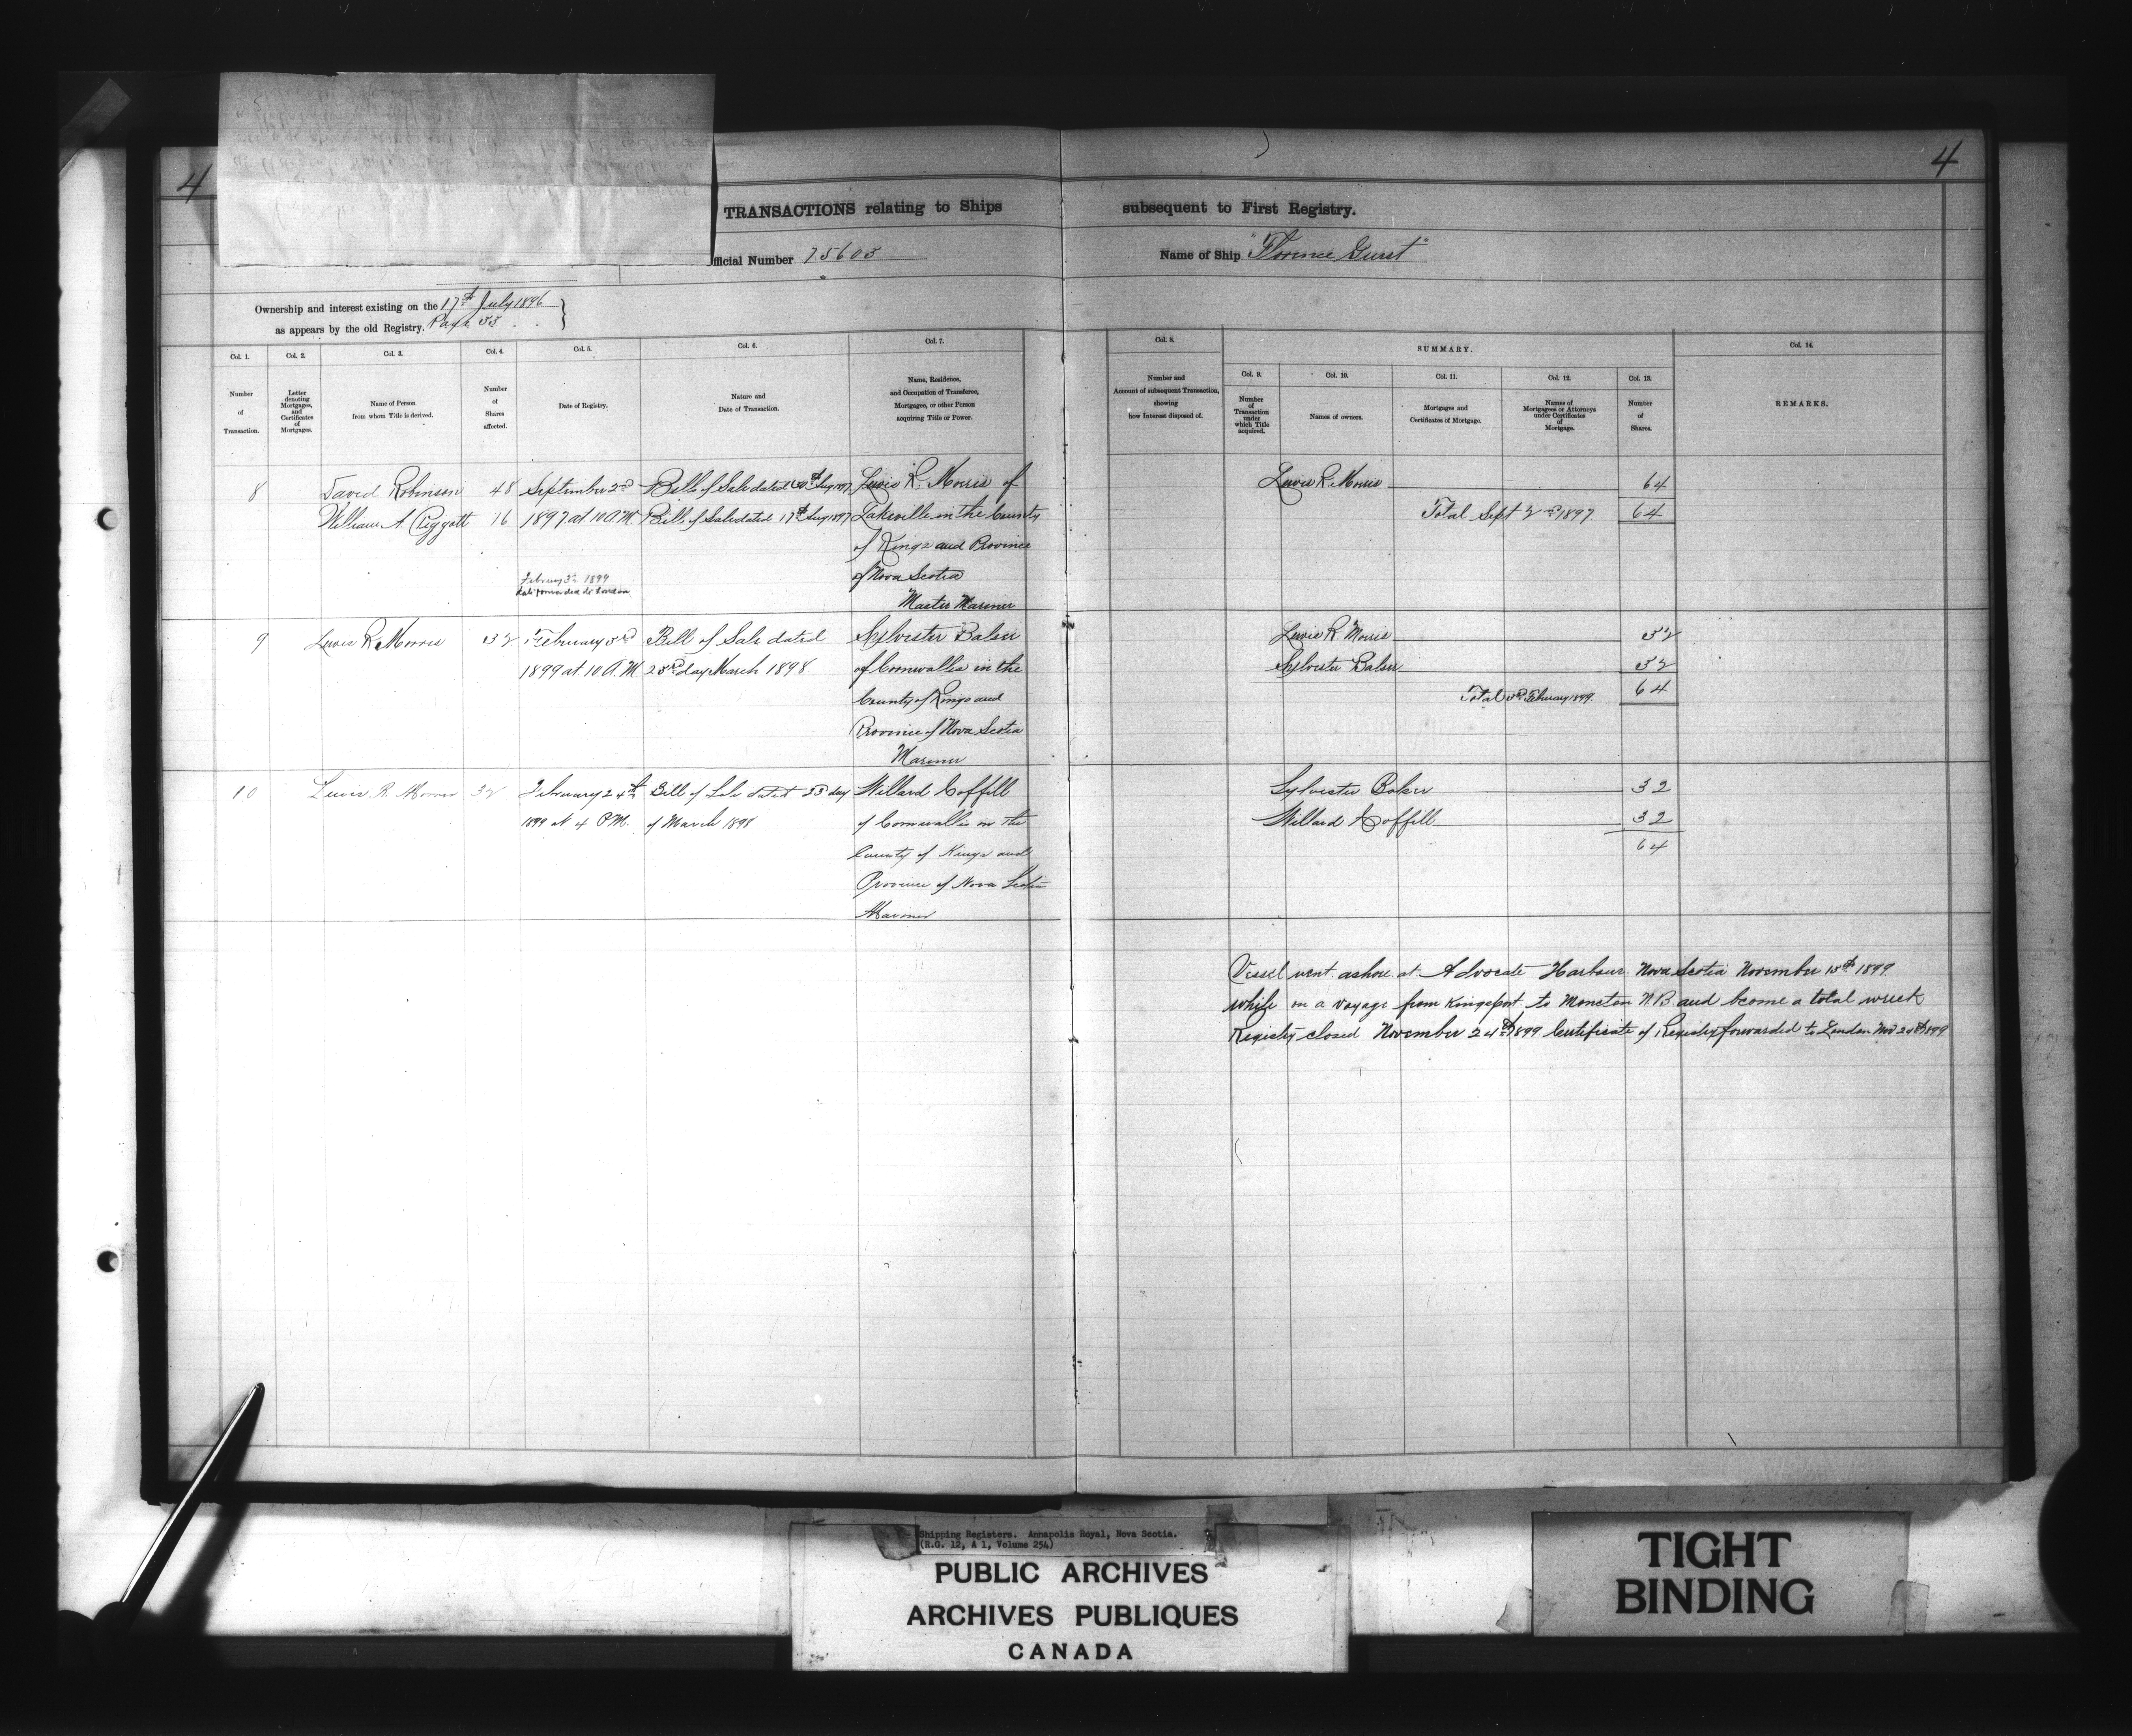 4
4
TRANSACTIONS relating to Ships subsequent to First Registry.
fficial Number 75603
Name of Ship "Florence Guest"
Ownership and interest existing on the 17th July 1896
as appears by the old Registry. Page 33
Col. 1. Col. 2. Col. 3. Col. 4. Col. 5. Col. 6. Col. 7.
Number of Transaction.
Letter denoting Mortgages, and Certificates of Mortgages.
Name of Person from whom Title is derived.
Number of Shares affected.
Date of Registry.
Nature and Date of Transaction.
Name, Residence, and Occupation of Transferee, Mortgagee, or other Person acquiring Title or Power.
Col. 8. SUMMARY. Col. 14.
Col. 9. Col. 10. Col. 11. Col. 12. Col. 13.
Number and Account of subsequent Transaction, showing how Interest disposed of.
Number of Transaction under which Title acquired.
Names of owners.
Mortgages and Certificates of Mortgage.
Names of Mortgagees or Attorneys under Certificates of Mortgage.
Number of Shares.
REMARKS.
8 David Robinson 48 September 2nd Bill of Sale dated Aug 1897 Lewis R. Morris of
William A. Piggott 16 1897 at 10 A.M. Bill of Sale dated 17th Aug 1897 Lakeville in the County
of Kings and Province
of Nova Scotia
Master Mariner
February 3rd 1899
forwarded to London
Lewis R. Morris 64
Total Sept 2nd 1897 64
9 Lewis R. Morris 32 February 3rd Bill of Sale dated Sylvester Baker
1899 at 10 A.M. 23rd day March 1898 of Cornwallis in the
County of Kings and
Province of Nova Scotia
Mariner
Lewis R. Morris 32
Sylvester Baker 32
Total 3rd February 1899 64
10 Lewis R. Morris 32 February 24th Bill of Sale dated 23 day Willard Coffill
1899 at 4 P.M. of March 1898 of Cornwallis in the
County of Kings and
Province of Nova Scotia
Mariner
Sylvester Baker 32
Willard Coffill 32
64
Vessel went ashore at Advocate Harbour Nova Scotia November 13th 1899
while on a voyage from Kingsport to Moncton N.B. and become a total wreck
Registry closed November 24th 1899 Certificate of Registry forwarded to London Nov 1899
Shipping Registers. Annapolis Royal, Nova Scotia.
(R.G. 12, A 1, Volume 254)
PUBLIC ARCHIVES
ARCHIVES PUBLIQUES
CANADA
TIGHT
BINDING